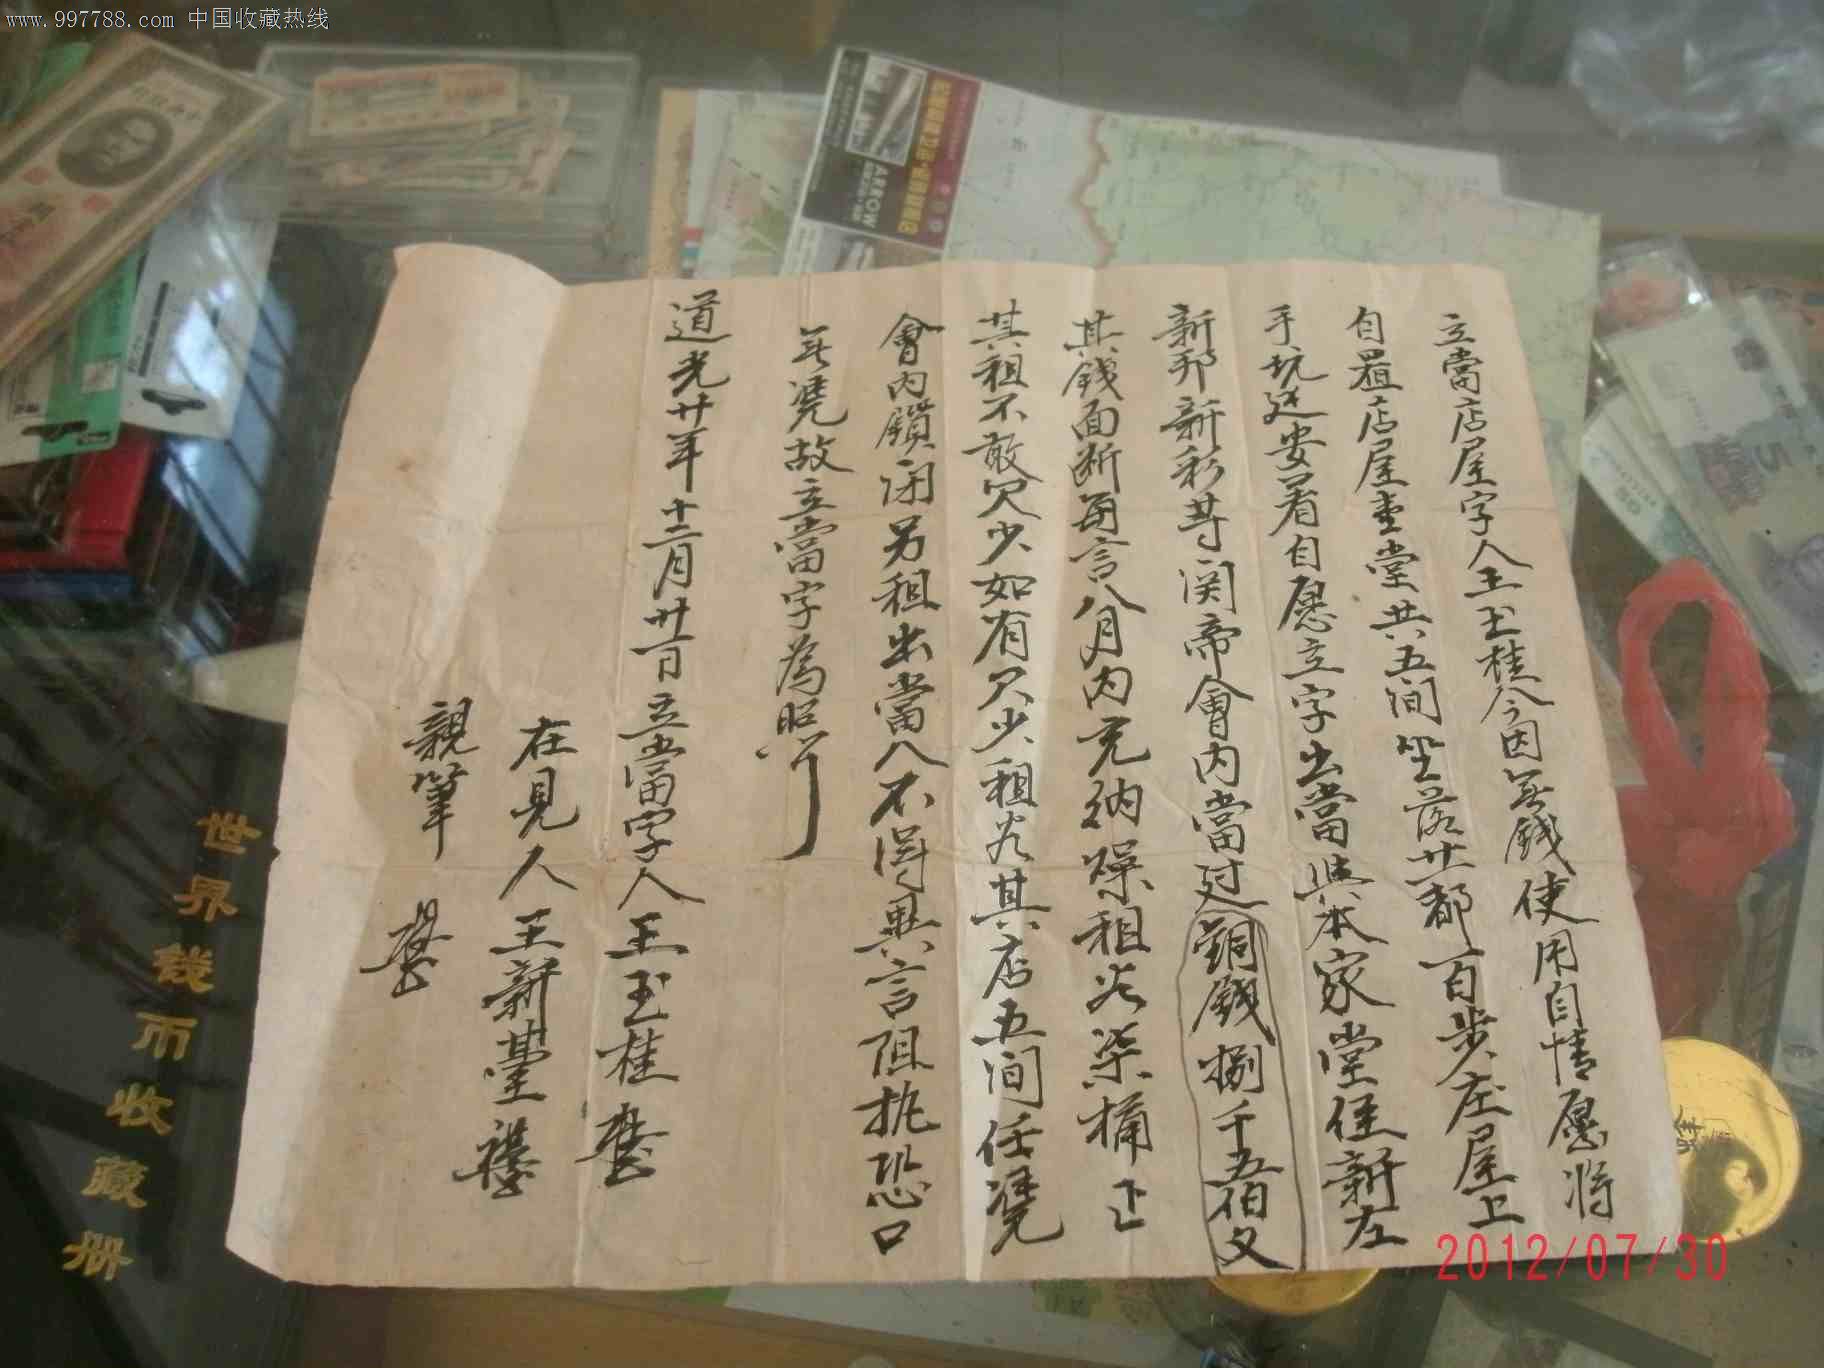 www.997788.com 中国收藏热线
立當店屋字人王玉桂今因無錢使用自情愿将
自置店屋壹堂共五间坐落廿都百步庄屋上
手坑 安着自愿立字出當與本家堂侄新左
新邦新彩等関帝會内當过銅錢捌千五伯文
其錢面断每言八月内充纳燥租谷柒桶正
其租不敢欠少如有欠少租谷其店五间任凭
會内鎖闭另租出當人不得異言阻执恐口
無凭故立當字為照
道光廿年十二月廿日立當字人王玉桂
在見人王新臺
親筆
世界钱币收藏册
ARROW
2012/07/30